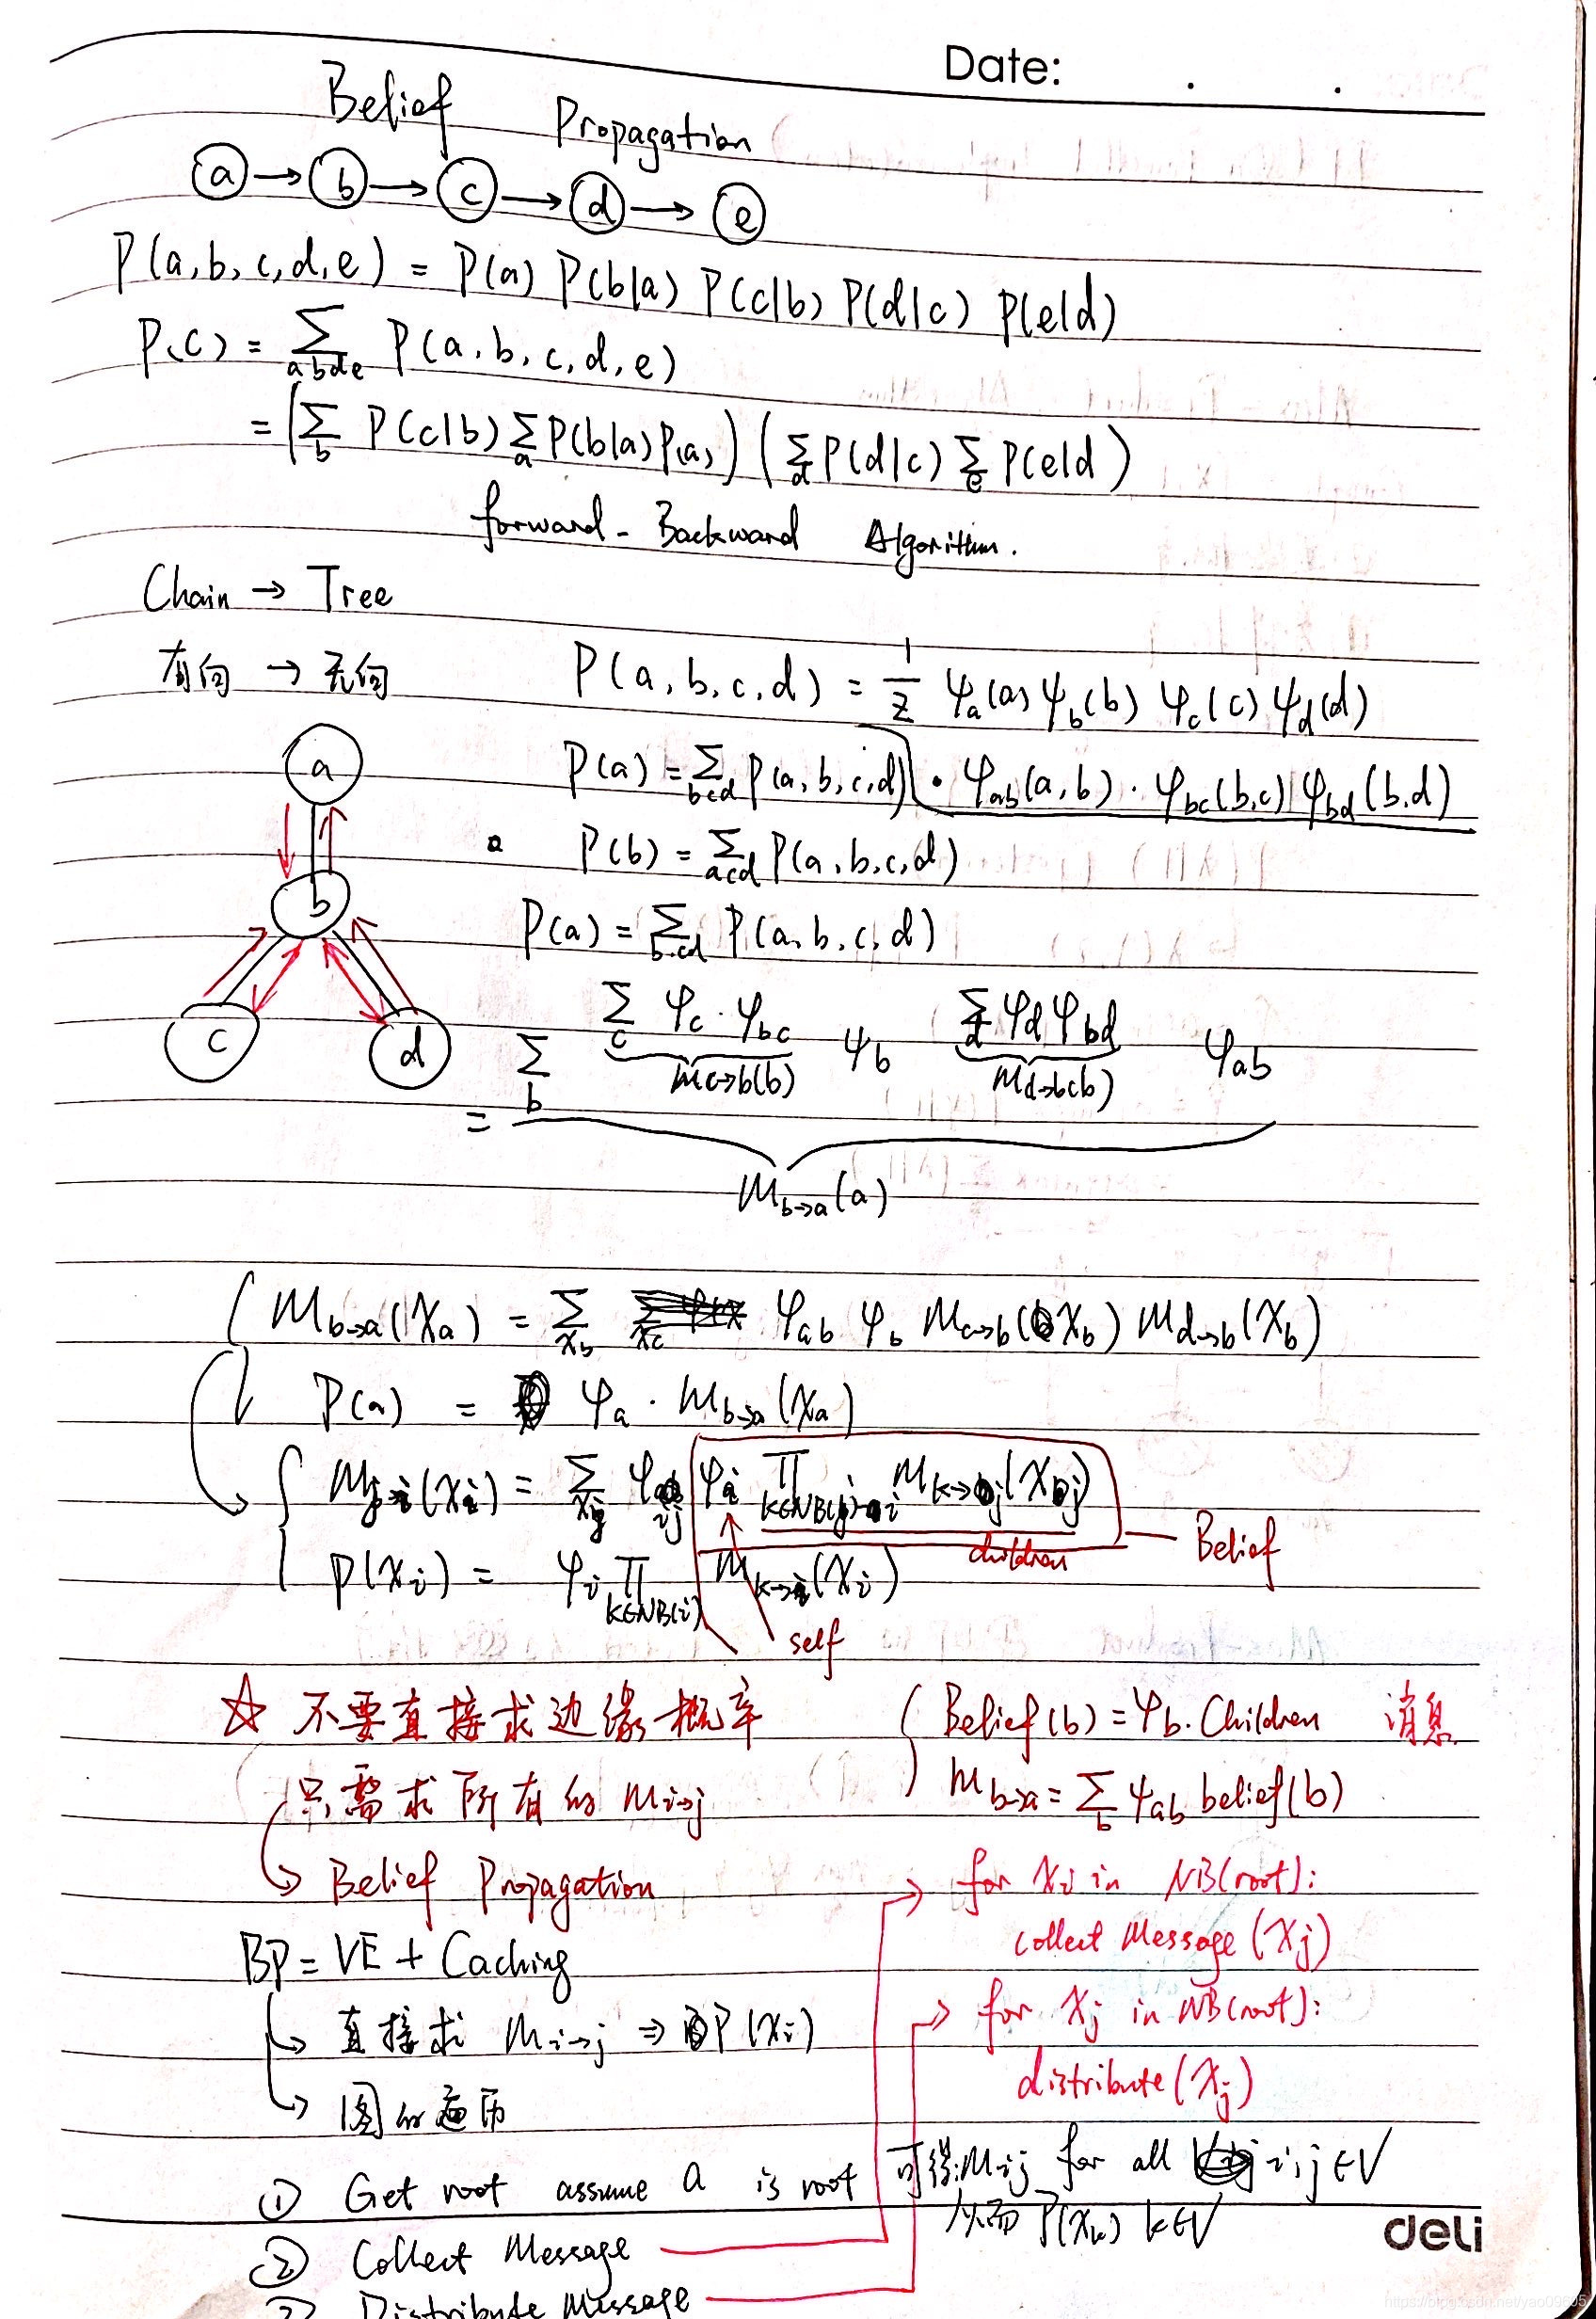 Date: . .
Belief Propagation
a → b → c → d → e
P(a,b,c,d,e) = P(a) P(b|a) P(c|b) P(d|c) P(e|d)
P(c) = ∑_{abde} P(a,b,c,d,e)
= (∑_b P(c|b) ∑_a P(b|a) P(a)) (∑_d P(d|c) ∑_e P(e|d)
forward - Backward Algorithm.
Chain → Tree
有向 → 无向
P(a,b,c,d) = 1/Z ψ_a(a) ψ_b(b) ψ_c(c) ψ_d(d)
· ψ_ab(a,b) · ψ_bc(b,c) ψ_bd(b,d)
P(a) = ∑_{bcd} P(a,b,c,d)
P(b) = ∑_{acd} P(a,b,c,d)
a
b
c
d
P(a) = ∑_{b.cd} P(a,b,c,d)
= ∑_b ∑_c ψ_c · ψ_bc ψ_b ∑_d ψ_d ψ_bd ψ_ab
m_{c→b}(b) m_{d→b}(b)
m_{b→a}(a)
m_{b→a}(x_a) = ∑_{x_b} ψ_ab ψ_b m_{c→b}(x_b) m_{d→b}(x_b)
P(a) = ψ_a · m_{b→a}(x_a)
m_{j→i}(x_i) = ∑_{x_j} ψ_ij ψ_i ∏_{k∈NB(j)-i} m_{k→j}(x_j)
children
Belief
P(x_i) = ψ_i ∏_{k∈NB(i)} m_{k→i}(x_i)
self
☆ 不要直接求边缘概率
只需求所有的 m_{i→j}
Belief Propagation
Belief(b) = ψ_b · Children 消息
m_{b→a} = ∑_b ψ_ab belief(b)
BP = VE + Caching
直接求 m_{i→j} ⇒ P(x_i)
图的遍历
→ for x_i in NB(root):
collect Message (x_j)
→ for x_j in NB(root):
distribute (x_j)
① Get root assume a is root
② Collect Message
③ Distribute Message
可得: m_ij for all i,j∈V
从而 P(x_k) k∈V
deli